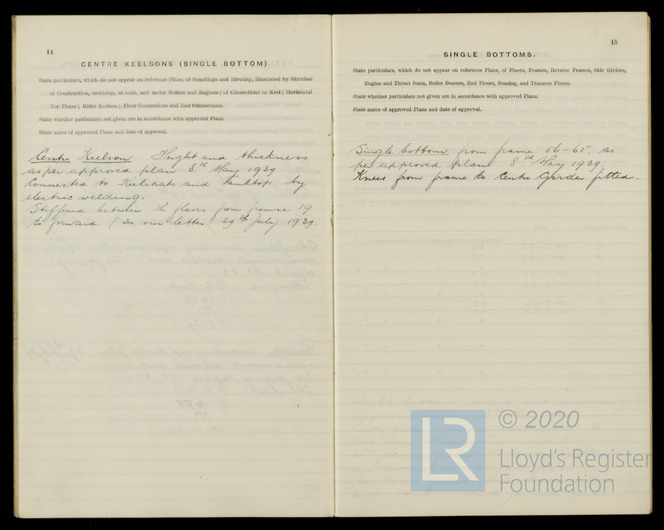 14
CENTRE KEELSONS (SINGLE BOTTOM)
State particulars, which do not appear on reference Plans, of Scantlings and Riveting, illustrated by Sketches
of Construction, amidships, at ends, and under Boilers and Engines; of Connections to Keel; Horizontal
Top Plates; Rider Keelson; Floor Connections and End Connections.
State whether particulars not given are in accordance with approved Plans.
State name of approved Plans and date of approval.
Centre Keelson Height and thickness
as per approved plan 8th May 1939
Connected to Keelplate and Tanktop by
electric welding.
Stiffened between the floors from frame 19
to forward. (See our letter 29th July 1939.
15
SINGLE BOTTOMS.
State particulars, which do not appear on reference Plans, of Floors, Frames, Reverse Frames, Side Girders,
Engine and Thrust Seats, Boiler Bearers, End Floors, Bossing, and Transom Floors.
State whether particulars not given are in accordance with approved Plans.
State name of approved Plans and date of approval.
Single bottom from frame 56-65 as
per approved plan 8th May 1939.
Knees from frame to Centre Girder fitted.
LR
© 2020
Lloyd's Register
Foundation